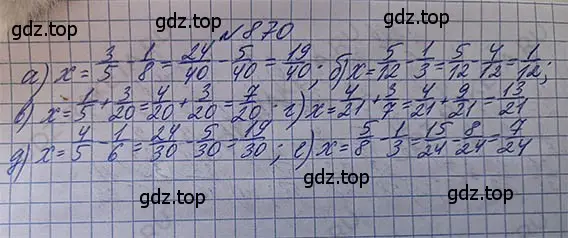 gdz.top
№870
gdz.top
а) x = 3/5 - 1/8 = 24/40 - 5/40 = 19/40; б) x = 5/12 - 1/3 = 5/12 - 4/12 = 1/12;
в) x = 1/5 + 3/20 = 4/20 + 3/20 = 7/20. г) x = 4/21 + 3/7 = 4/21 + 9/21 = 13/21
gdz.top
д) x = 4/5 - 1/6 = 24/30 - 5/30 = 19/30; е) x = 5/8 - 1/3 = 15/24 - 8/24 = 7/24
gdz.top
gdz.top